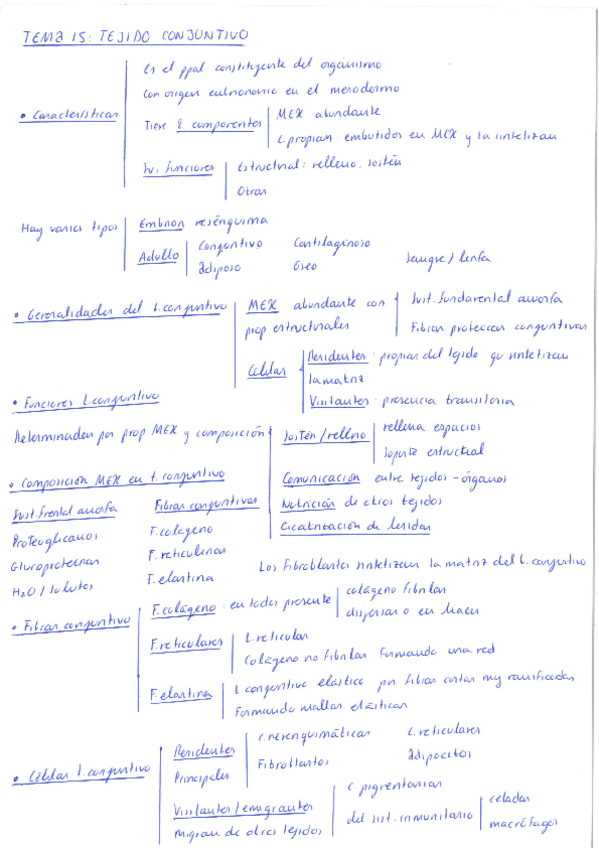 TEMA 15: TEJIDO CONJUNTIVO
Es el ppal constituyente del organismo
Con origen embrionario en el mesodermo
• Características
Tiene 2 componentes
MEX abundante
C. propian: embutidos en MEX y la sintetizan
Sus funciones
Estructural: relleno, sostén
Otras
Hay varios tipos
Embrión mesénquima
Adulto
Conjuntivo
Cartilaginoso
Adiposo
Óseo
Sangre/linfa
• Generalidades del t. conjuntivo
MEX abundante con
prop estructurales
Sust. fundamental amorfa
Fibras proteicas conjuntivas
Células
Residentes: propias del tejido q sintetizan
la matriz
Visitantes: presencia transitoria
• Funciones t. conjuntivo
Determinadas por prop MEX y composición
Sostén/relleno
rellena espacios
Soporte estructural
Comunicación entre tejidos - órganos
Nutrición de otros tejidos
Cicatrización de heridas
• Composición MEX en t. conjuntivo
Sust. fmtal amorfa
Proteoglicanos
Glucoproteínas
H2O / solutos
Fibras conjuntivas
F. colágeno
F. reticulinas
F. elastina
Los fibroblastos sintetizan la matriz del t. conjuntivo
• Fibras conjuntivo
F. colágeno: en todos presente
colágeno fibrilar
dispersas o en haces
F. reticulares
t. reticular
Colágeno no fibrilar formando una red
F. elastina
t. conjuntivo elástico por fibras cortas muy ramificadas
formando mallas elásticas
• Células t. conjuntivo
Residentes
Principales
c. mesenquimáticas
Fibroblastos
c. reticulares
Adipocitos
Visitantes/emigrantes
migran de otros tejidos
c. pigmentarias
del sist. inmunitario
cebadas
macrófagos